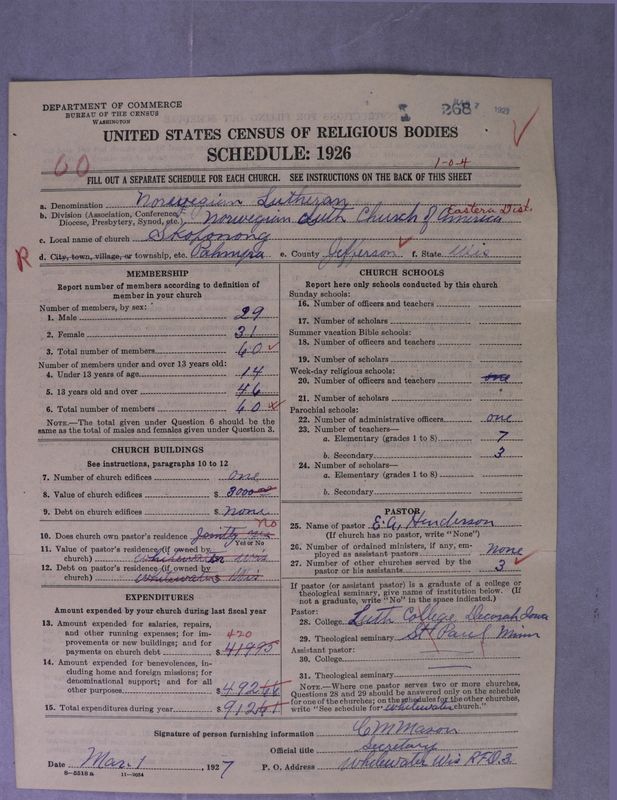 DEPARTMENT OF COMMERCE
BUREAU OF THE CENSUS
WASHINGTON
268
UNITED STATES CENSUS OF RELIGIOUS BODIES
SCHEDULE: 1926
60
1-0-4
FILL OUT A SEPARATE SCHEDULE FOR EACH CHURCH. SEE INSTRUCTIONS ON THE BACK OF THIS SHEET
a. Denomination Norwegian Lutheran
b. Division (Association, Conference, Diocese, Presbytery, Synod, etc.) Norwegian Luth Church of America Eastern Dist.
c. Local name of church Skoponong
R d. City, town, village, or township, etc. Palmyra e. County Jefferson f. State Wis
MEMBERSHIP
Report number of members according to definition of
member in your church
Number of members, by sex:
1. Male 29
2. Female 31
3. Total number of members 60
Number of members under and over 13 years old:
4. Under 13 years of age 14
5. 13 years old and over 46
6. Total number of members 60
NOTE.—The total given under Question 6 should be
same as the total of males and females given under Question 3.
CHURCH BUILDINGS
See instructions, paragraphs 10 to 12
7. Number of church edifices one
8. Value of church edifices $ 3000
9. Debt on church edifices $ none
10. Does church own pastor's residence Jointly yes No
Yes or No
11. Value of pastor's residence (if owned by
church) Whitewater Wis
12. Debt on pastor's residence (if owned by
church) Whitewater Wis
EXPENDITURES
Amount expended by your church during last fiscal year
13. Amount expended for salaries, repairs,
and other running expenses; for im-
provements or new buildings; and for
payments on church debt $ 419 95 420
14. Amount expended for benevolences, in-
cluding home and foreign missions; for
denominational support; and for all
other purposes $ 492
15. Total expenditures during year $ 912
CHURCH SCHOOLS
Report here only schools conducted by this church
Sunday schools:
16. Number of officers and teachers
17. Number of scholars
Summer vacation Bible schools:
18. Number of officers and teachers
19. Number of scholars
Week-day religious schools:
20. Number of officers and teachers one
21. Number of scholars
Parochial schools:
22. Number of administrative officers one
23. Number of teachers—
a. Elementary (grades 1 to 8) 7
b. Secondary 3
24. Number of scholars—
a. Elementary (grades 1 to 8)
b. Secondary
PASTOR
25. Name of pastor E. A. Henderson
(If church has no pastor, write "None")
26. Number of ordained ministers, if any, em-
ployed as assistant pastors None
27. Number of other churches served by the
pastor or his assistants 3
If pastor (or assistant pastor) is a graduate of a college or
theological seminary, give name of institution below. (If
not a graduate, write "No" in the space indicated.)
Pastor:
28. College Luth College Decorah Iowa
29. Theological seminary St Paul Minn
Assistant pastor:
30. College
31. Theological seminary
NOTE.—Where one pastor serves two or more churches,
Questions 28 and 29 should be answered only on the schedule
for one of the churches; on the schedules for the other churches,
write "See schedule for Whitewater church."
Signature of person furnishing information C M Mason
Official title Secretary
Date Mar. 1, 1927 P. O. Address Whitewater Wis RFD. 3
8—5518a 11—9684